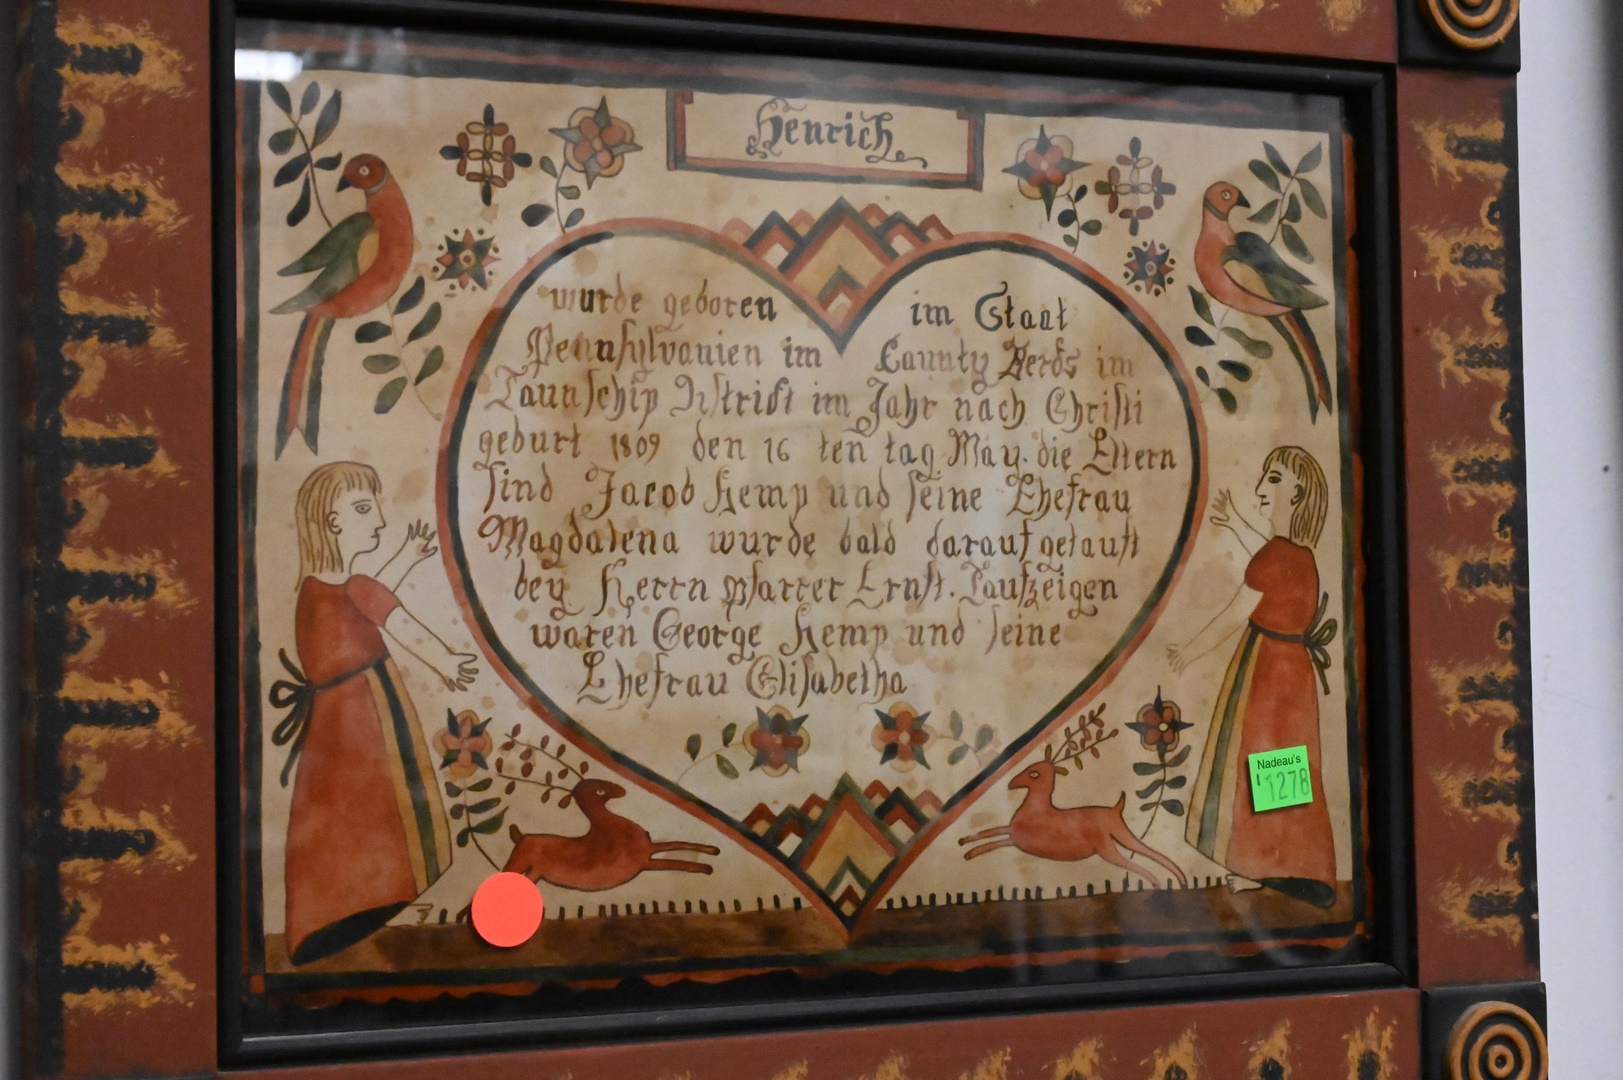 Henrich
wurde geboren im Staat
Pennsylvanien im Caunty Berds im
Taunschip Distrikt im Jahr nach Christi
geburt 1809 den 16 ten tag May. die Eltern
sind Jacob Kemp und seine Ehefrau
Magdalena wurde bald darauf getauft
bey Herrn pfarrer Ernst. Taufzeigen
waren George Kemp und seine
Ehefrau Elisabetha
Nadeau's
1278